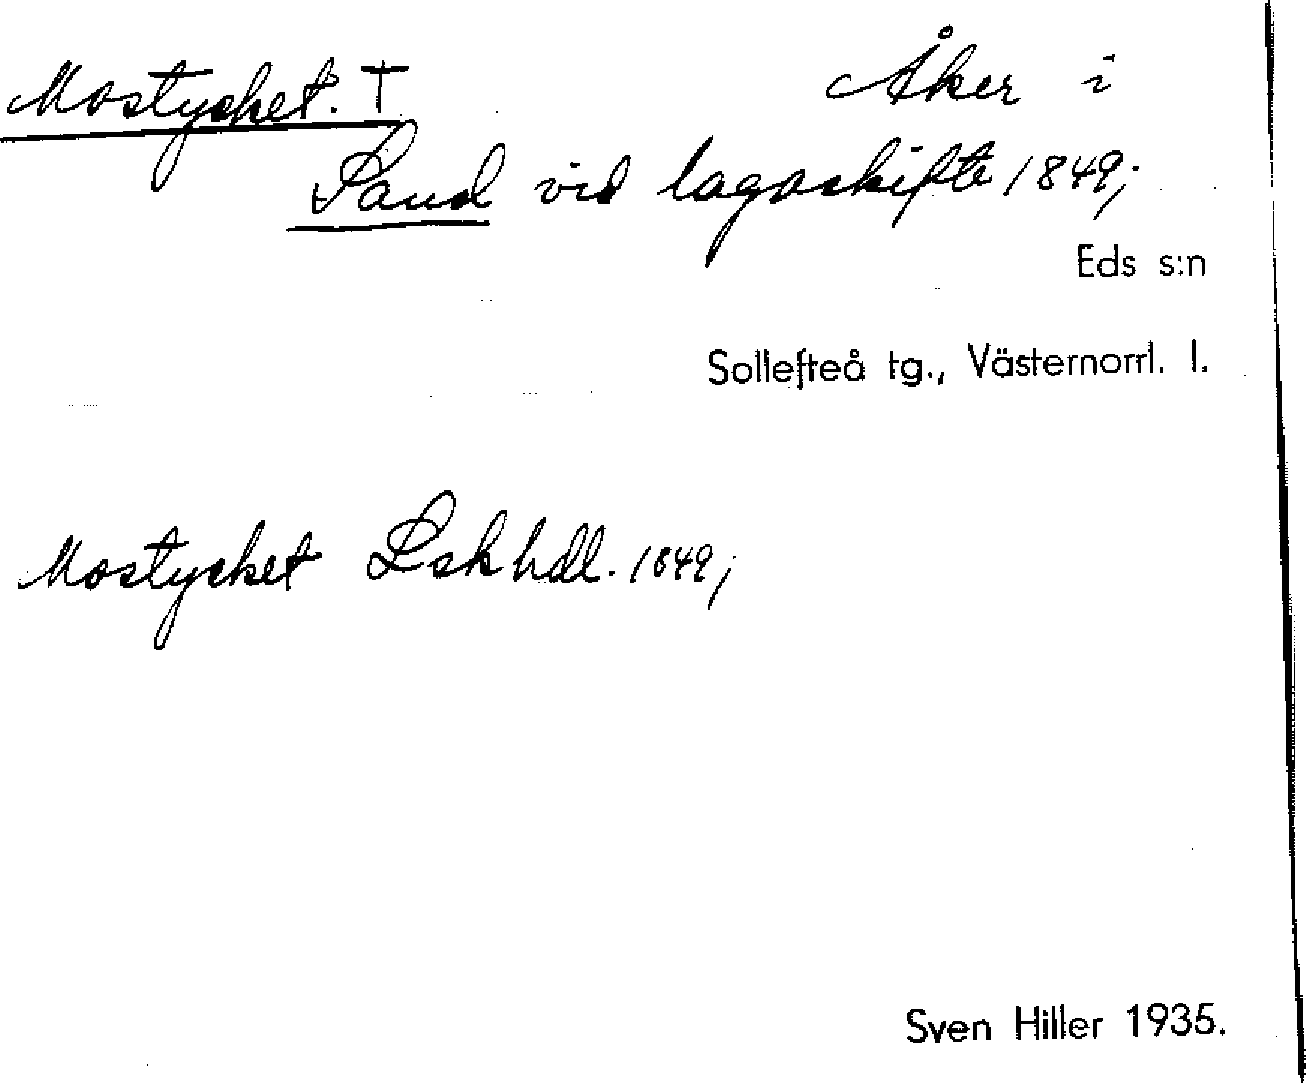 Mostycket. † Åker i
Sand vid lagaskifte 1849;
Eds s:n
Sollefteå tg., Västernorrl. l.
Mostycket Lskhdl. 1849;
Sven Hiller 1935.